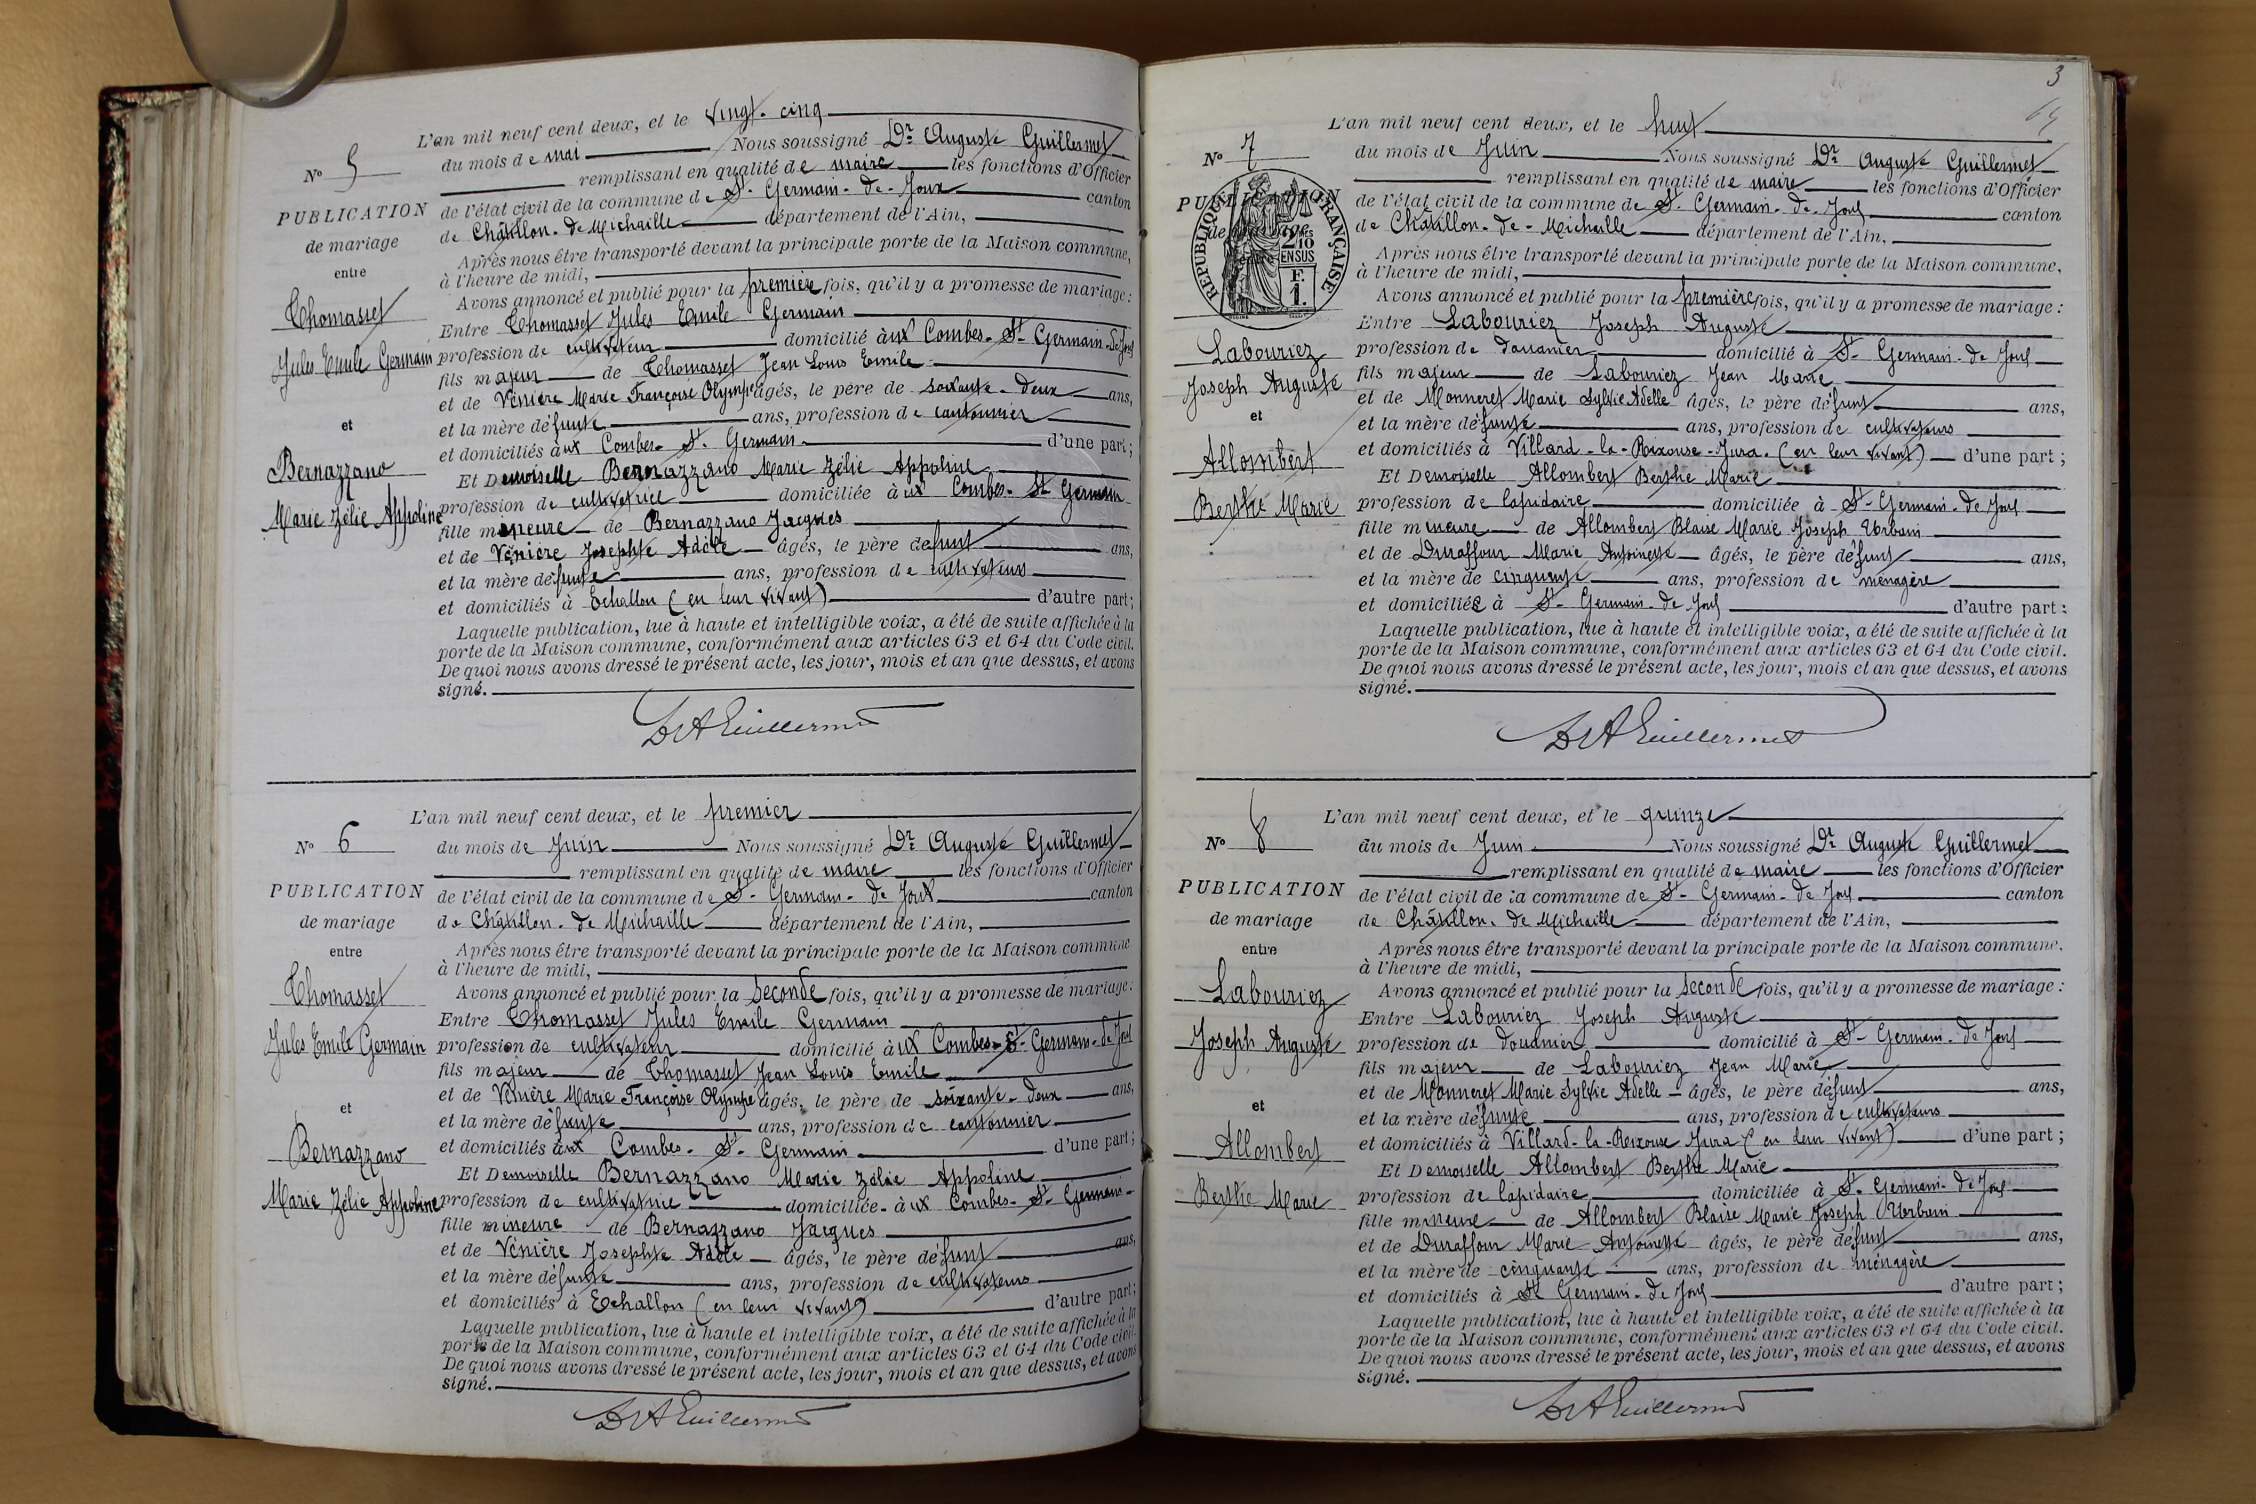 L'an mil neuf cent deux, et le vingt-cinq
N° 5
du mois de mai Nous soussigné Dr Auguste Guillermet
remplissant en qualité de maire les fonctions d'Officier
PUBLICATION
de mariage
entre
Thomasset
Jules Emile Germain
et
Bernazzano
Marie Zélie Appoline
de l'état civil de la commune de St-Germain-de-Joux canton
de Châtillon-de-Michaille département de l'Ain,
Après nous être transporté devant la principale porte de la Maison commune,
à l'heure de midi,
Avons annoncé et publié pour la première fois, qu'il y a promesse de mariage :
Entre Thomasset Jules Emile Germain
profession de cultivateur domicilié àux Combes-St Germain-de-Joux
fils majeur de Thomasset Jean Louis Emile
et de Vénière Marie Françoise Olympe âgés, le père de soixante-deux ans,
et la mère défunte ans, profession de cantonnier
et domiciliés àux Combes-St-Germain d'une part ;
Et Demoiselle Bernazzano Marie Zélie Appoline
profession de cultivatrice domiciliée àux Combes-St Germain
fille mineure de Bernazzano Jacques
et de Vénière Josephte Adèle âgés, le père defunt ans,
et la mère défunte ans, profession de cultivateurs
et domiciliés à Echallon (en leur vivant) d'autre part ;
Laquelle publication, lue à haute et intelligible voix, a été de suite affichée à la
porte de la Maison commune, conformément aux articles 63 et 64 du Code civil.
De quoi nous avons dressé le présent acte, les jour, mois et an que dessus, et avons
signé.
Dr A Guillermet
L'an mil neuf cent deux, et le premier
N° 6
du mois de Juin Nous soussigné Dr Auguste Guillermet
remplissant en qualité de maire les fonctions d'Officier
PUBLICATION
de mariage
entre
Thomasset
Jules Emile Germain
et
Bernazzano
Marie Zélie Appoline
de l'état civil de la commune de St-Germain-de Joux canton
de Châtillon-de Michaille département de l'Ain,
Après nous être transporté devant la principale porte de la Maison commune
à l'heure de midi,
Avons annoncé et publié pour la seconde fois, qu'il y a promesse de mariage.
Entre Thomasset Jules Emile Germain
profession de cultivateur domicilié àux Combes-St-Germain-de Joux
fils majeur de Thomasset Jean Louis Emile
et de Vénière Marie Françoise Olympe âgés, le père de soixante-deux ans,
et la mère défunte ans, profession de cantonnier
et domiciliés àux Combes-St-Germain d'une part ;
Et Demoiselle Bernazzano Marie Zélie Appoline
profession de cultivatrice domiciliée àux Combes-St Germain
fille mineure de Bernazzano Jacques
et de Vénière Josephte Adèle âgés, le père défunt ans,
et la mère défunte ans, profession de cultivateurs
et domiciliés à Echallon (en leur vivant) d'autre part ;
Laquelle publication, lue à haute et intelligible voix, a été de suite affichée à la
porte de la Maison commune, conformément aux articles 63 et 64 du Code civil.
De quoi nous avons dressé le présent acte, les jour, mois et an que dessus, et avons
signé.
Dr A Guillermet
3
L'an mil neuf cent deux, et le huit
N° 7
du mois de Juin Nous soussigné Dr Auguste Guillermet
remplissant en qualité de maire les fonctions d'Officier
PUBLICATION
RÉPUBLIQUE FRANÇAISE
2/10 EN SUS
F.
1.
Labouriez
Joseph Auguste
et
Allombert
Berthe Marie
de l'état civil de la commune de St-Germain-de-Joux canton
de Châtillon-de-Michaille département de l'Ain,
Après nous être transporté devant la principale porte de la Maison commune,
à l'heure de midi,
Avons annoncé et publié pour la première fois, qu'il y a promesse de mariage :
Entre Labouriez Joseph Auguste
profession de douanier domicilié à St-Germain-de Joux
fils majeur de Labouriez Jean Marie
et de Monneret Marie Sylvie Adelle âgés, le père défunt ans,
et la mère défunte ans, profession de cultivateurs
et domiciliés à Villard-la-Rixouse-Jura-(en leur vivant) d'une part ;
Et Demoiselle Allombert Berthe Marie
profession de lapidaire domiciliée à St-Germain-de Joux
fille mineure de Allombert Blaise Marie Joseph Urbain
et de Duraffour Marie Antoinette âgés, le père défunt ans,
et la mère de cinquante ans, profession de ménagère
et domiciliée à St-Germain-de Joux d'autre part :
Laquelle publication, lue à haute et intelligible voix, a été de suite affichée à la
porte de la Maison commune, conformément aux articles 63 et 64 du Code civil.
De quoi nous avons dressé le présent acte, les jour, mois et an que dessus, et avons
signé.
Dr A Guillermet
L'an mil neuf cent deux, et le quinze
N° 8
du mois de Juin Nous soussigné Dr Auguste Guillermet
remplissant en qualité de maire les fonctions d'Officier
PUBLICATION
de mariage
entre
Labouriez
Joseph Auguste
et
Allombert
Berthe Marie
de l'état civil de la commune de St-Germain-de Joux canton
de Châtillon-de Michaille département de l'Ain,
Après nous être transporté devant la principale porte de la Maison commune.
à l'heure de midi,
Avons annoncé et publié pour la seconde fois, qu'il y a promesse de mariage :
Entre Labouriez Joseph Auguste
profession de douanier domicilié à St-Germain-de Joux
fils majeur de Labouriez Jean Marie
et de Monneret Marie Sylvie Adelle âgés, le père défunt ans,
et la mère défunte ans, profession de cultivateurs
et domiciliés à Villard-la-Rixouse Jura (en leur vivant) d'une part ;
Et Demoiselle Allombert Berthe Marie
profession de lapidaire domiciliée à St-Germain-de Joux
fille mineure de Allombert Blaise Marie Joseph Urbain
et de Duraffour Marie Antoinette âgés, le père défunt ans,
et la mère de cinquante ans, profession de ménagère
et domiciliés à St Germain-de Joux d'autre part ;
Laquelle publication, lue à haute et intelligible voix, a été de suite affichée à la
porte de la Maison commune, conformément aux articles 63 et 64 du Code civil.
De quoi nous avons dressé le présent acte, les jour, mois et an que dessus, et avons
signé.
Dr A Guillermet